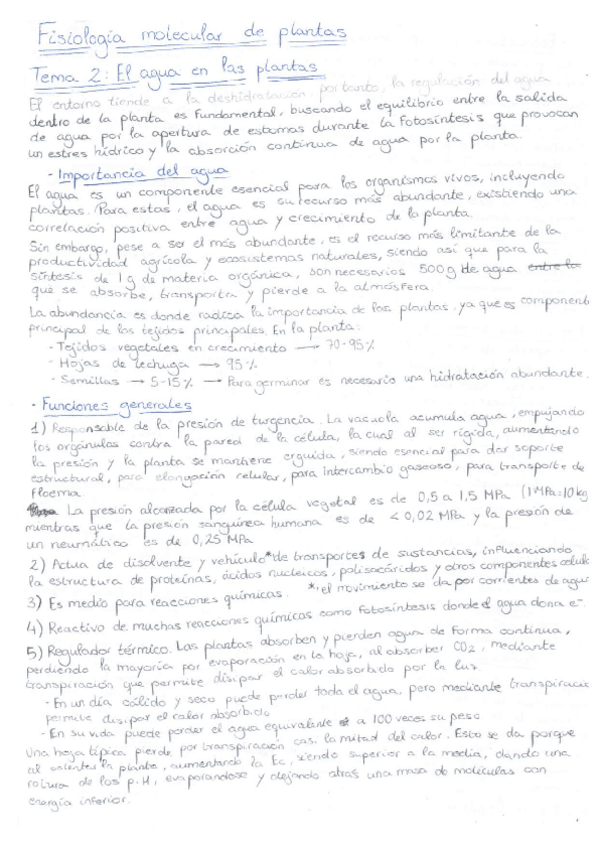 Fisiología molecular de plantas
Tema 2: El agua en las plantas
El entorno tiende a la deshidratación, por tanto, la regulación del agua
dentro de la planta es fundamental, buscando el equilibrio entre la salida
de agua por la apertura de estomas durante la fotosíntesis que provocan
un estres hídrico y la absorción continua de agua por la planta.
- Importancia del agua
El agua es un componente esencial para los organismos vivos, incluyendo
plantas. Para estas, el agua es su recurso más abundante, existiendo una
correlación positiva entre agua y crecimiento de la planta.
Sin embargo, pese a ser el más abundante, es el recurso más limitante de la
productividad agrícola y ecosistemas naturales, siendo así que para la
síntesis de 1g de materia orgánica, son necesarios 500g de agua entre la
que se absorbe, transporta y pierde a la atmósfera.
La abundancia es donde radica la importancia de las plantas, ya que es component
principal de los tejidos principales. En la planta:
- Tejidos vegetales en crecimiento → 70-95%
- Hojas de lechuga → 95%
- Semillas → 5-15% → Para germinar es necesario una hidratación abundante.
- Funciones generales
1) Responsable de la presión de turgencia. La vacuola acumula agua, empujando
los orgánulos contra la pared de la célula, la cual al ser rígida, aumentando
la presión y la planta se mantiene erguida, siendo esencial para dar soporte
estructural, para elongación celular, para intercambio gaseoso, para transporte de
floema.
La presión alcanzada por la célula vegetal es de 0,5 a 1,5 MPa (1MPa=10kg
mientras que la presión sanguínea humana es de < 0,02 MPa y la presión de
un neumático es de 0,25 MPa
2) Actua de disolvente y vehículo* de transportes de sustancias, influenciando
la estructura de proteínas, ácidos nucleicos, polisacáridos y otros componentes celula
*, el movimiento se da por corrientes de agua
3) Es medio para reacciones químicas.
4) Reactivo de muchas reacciones químicas como fotosíntesis donde el agua dona e-.
5) Regulador térmico. Las plantas absorben y pierden agua de forma continua,
perdiendo la mayoría por evaporación en la hoja, al absorber CO2, mediante
transpiración que permite disipar el calor absorbido por la luz
- En un día cálido y seco puede perder toda el agua, pero mediante transpiració
permite disipar el calor absorbido
- En su vida puede perder el agua equivalente a 100 veces su peso
Una hoja típica pierde por transpiración casi la mitad del calor. Esto se da porque
al calentar la planta, aumentando la Ec, siendo superior a la media, dando una
rotura de los p.H, evaporandose y dejando atrás una masa de moléculas con
energía inferior.